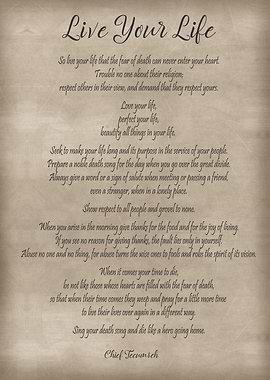 Live Your Life
So live your life that the fear of death can never enter your heart.
Trouble no one about their religion;
respect others in their view, and demand that they respect yours.
Love your life,
perfect your life,
beautify all things in your life.
Seek to make your life long and its purpose in the service of your people.
Prepare a noble death song for the day when you go over the great divide.
Always give a word or a sign of salute when meeting or passing a friend,
even a stranger, when in a lonely place.
Show respect to all people and grovel to none.
When you arise in the morning give thanks for the food and for the joy of living.
If you see no reason for giving thanks, the fault lies only in yourself.
Abuse no one and no thing, for abuse turns the wise ones to fools and robs the spirit of its vision.
When it comes your time to die,
be not like those whose hearts are filled with the fear of death,
so that when their time comes they weep and pray for a little more time
to live their lives over again in a different way.
Sing your death song and die like a hero going home.
Chief Tecumseh